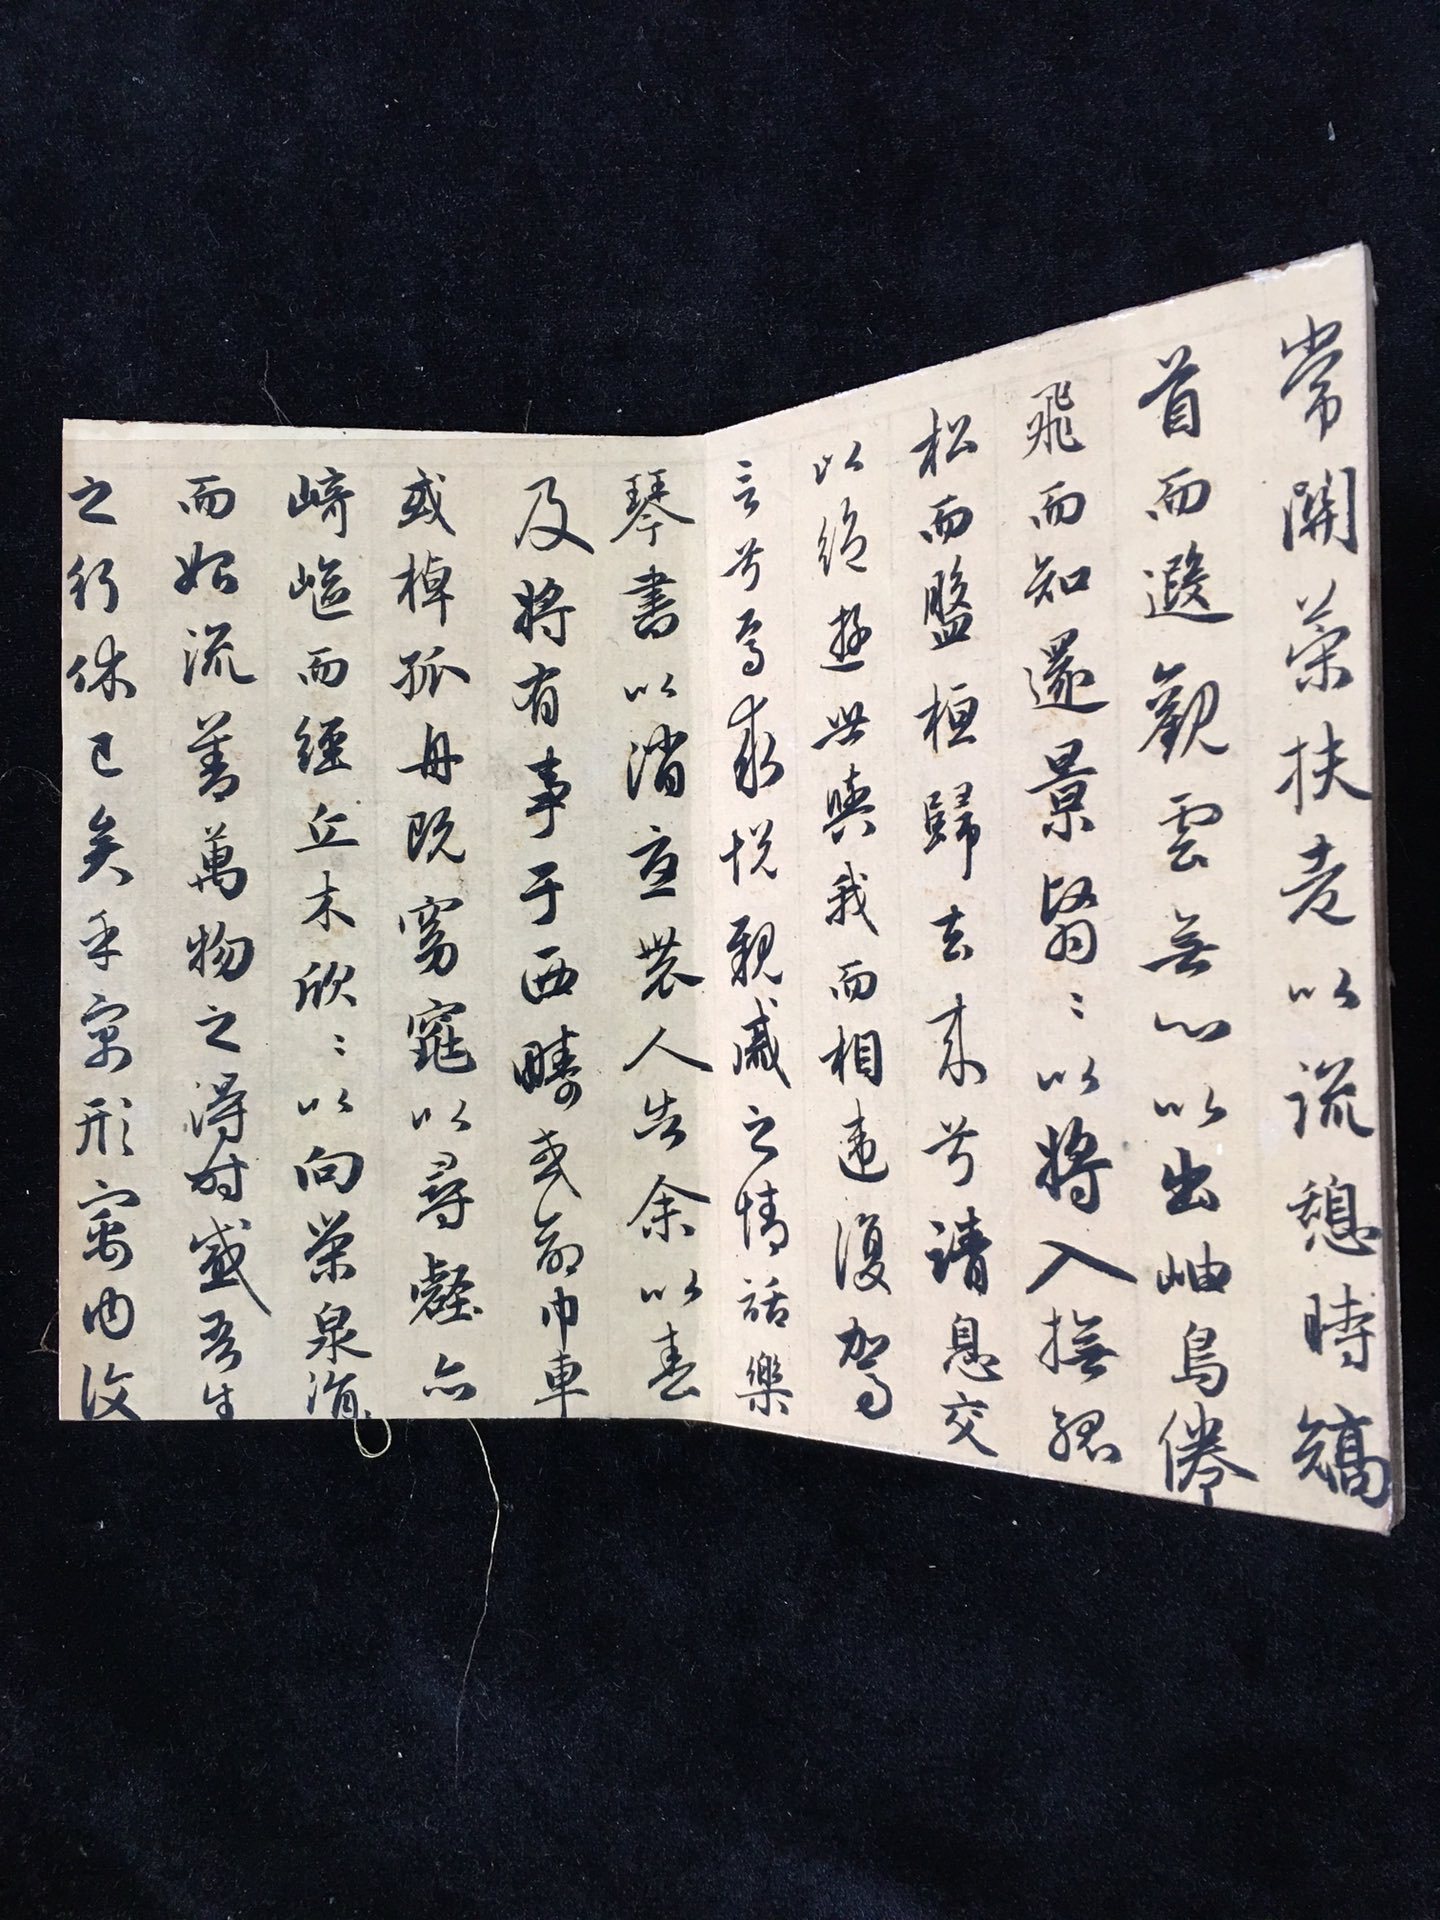 常關策扶老以流憩時矯
首而遐觀雲無心以出岫鳥倦
飛而知還景翳〻以將入撫孤
松而盤桓歸去来兮請息交
以絕遊世與我而相違復駕
言兮焉求悅親戚之情話樂
琴書以消憂農人告余以春
及將有事于西疇或命巾車
或棹孤舟既窈窕以尋壑亦
崎嶇而經丘木欣〻以向榮泉涓
而始流善萬物之得時感吾生
之行休已矣乎寓形㝢內復